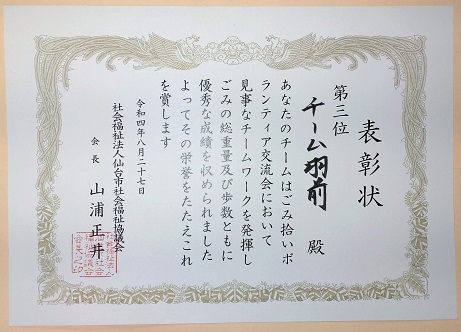 表彰状
第三位
チーム羽前 殿
あなたのチームはごみ拾いボ
ランティア交流会において
見事なチームワークを発揮し
ごみの総重量及び歩数ともに
優秀な成績を収められました
よってその栄誉をたたえこれ
を賞します
令和四年八月二十七日
社会福祉法人仙台市社会福祉協議会
会長 山浦正井